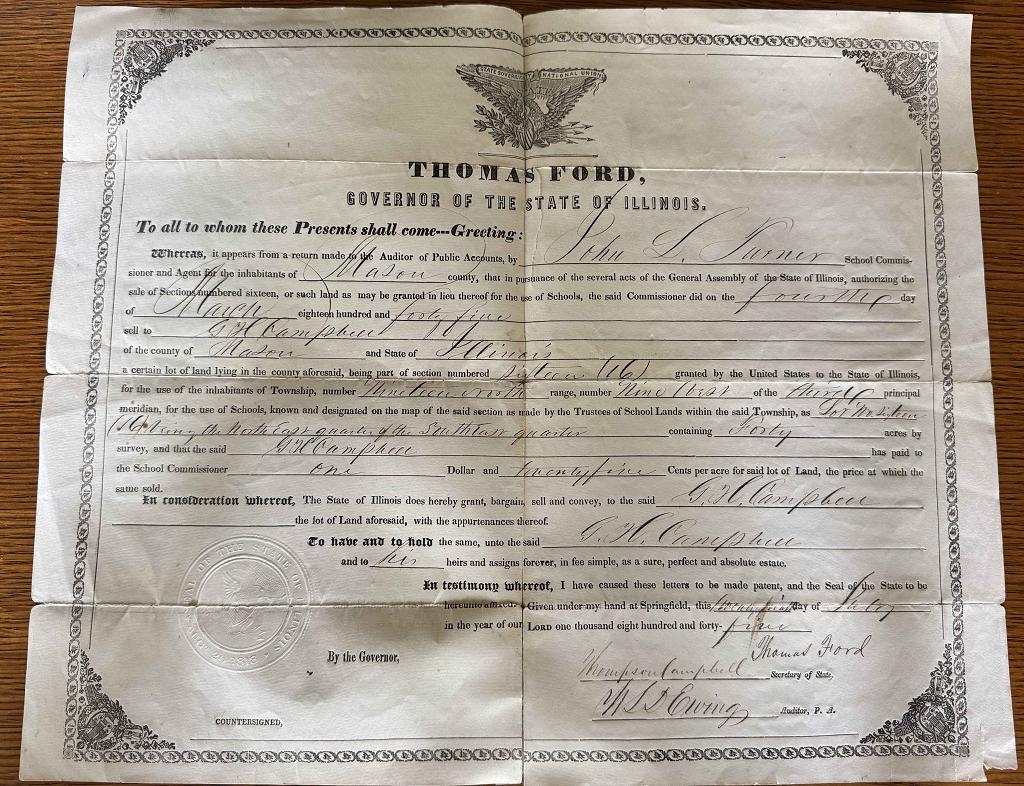 STATE SOVEREIGNTY NATIONAL UNION
THOMAS FORD,
GOVERNOR OF THE STATE OF ILLINOIS.
To all to whom these Presents shall come---Greeting:
Whereas, it appears from a return made to the Auditor of Public Accounts, by John S. Turner School Commis-
sioner and Agent for the inhabitants of Mason county, that in pursuance of the several acts of the General Assembly of the State of Illinois, authorizing the
sale of Sections numbered sixteen, or such land as may be granted in lieu thereof for the use of Schools, the said Commissioner did on the fourth day
of March eighteen hundred and forty five
sell to G H Campbell
of the county of Mason and State of Illinois
a certain lot of land lying in the county aforesaid, being part of section numbered sixteen (16) granted by the United States to the State of Illinois,
for the use of the inhabitants of Township, number Nineteen North range, number Nine West of the Third principal
meridian, for the use of Schools, known and designated on the map of the said section as made by the Trustees of School Lands within the said Township, as Lot No Sixteen
(16) being the North East quarter of the South East quarter containing Forty acres by
survey, and that the said G H Campbell has paid to
the School Commissioner one Dollar and twenty five Cents per acre for said lot of Land, the price at which the
same sold.
In consideration whereof, The State of Illinois does hereby grant, bargain, sell and convey, to the said G. H. Campbell
the lot of Land aforesaid, with the appurtenances thereof.
To have and to hold the same, unto the said G. H. Campbell
and to his heirs and assigns forever, in fee simple, as a sure, perfect and absolute estate.
In testimony whereof, I have caused these letters to be made patent, and the Seal of the State to be
hereunto affixed. Given under my hand at Springfield, this day of
in the year of our LORD one thousand eight hundred and forty-five
Thomas Ford
By the Governor,
Thompson Campbell Secretary of State.
W L D Ewing Auditor, P. A.
COUNTERSIGNED,
SEAL OF THE STATE OF ILLINOIS
AUG. 26 1818